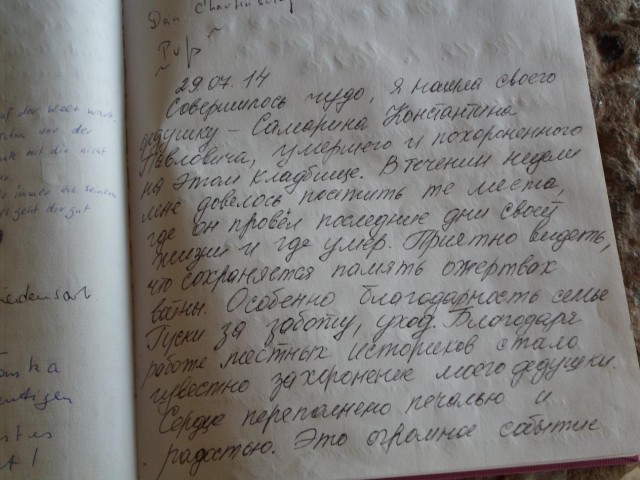 Dan
29.07.14
Совершилось чудо, я нашла своего
дедушку - Самарина Константина
Павловича, умершего и похороненного
на этом кладбище. В течении недели
мне довелось посетить те места,
где он провёл последние дни своей
жизни и где умер. Приятно видеть,
что сохраняется память о жертвах
войны. Особенно благодарность семье
Гуски за заботу, уход. Благодаря
работе местных историков стало
известно захоронение моего дедушки.
Сердце переполнено печалью и
радостью. Это огромное событие
auf der Welt
der
mit dir nicht
immer
geht dir gut